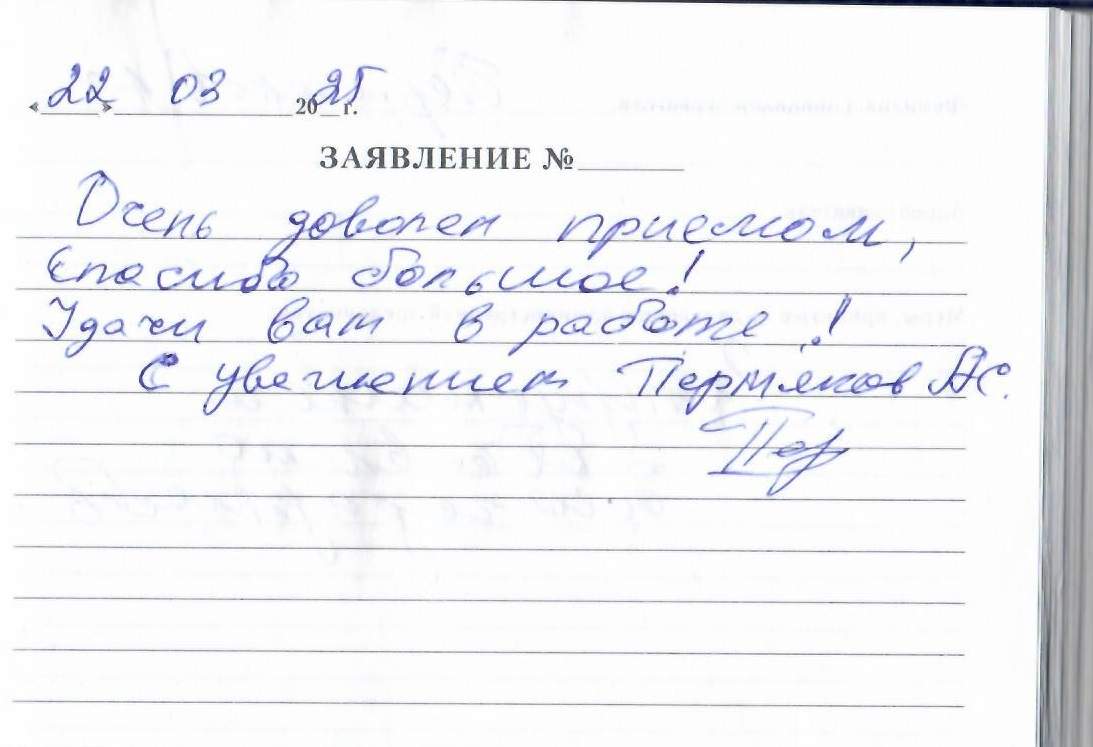 «22» 03 2025 г.
ЗАЯВЛЕНИЕ №
Очень доволен приемом,
Спасибо большое!
Удачи вам в работе!
С уважением Пермяков А.С.
Пер